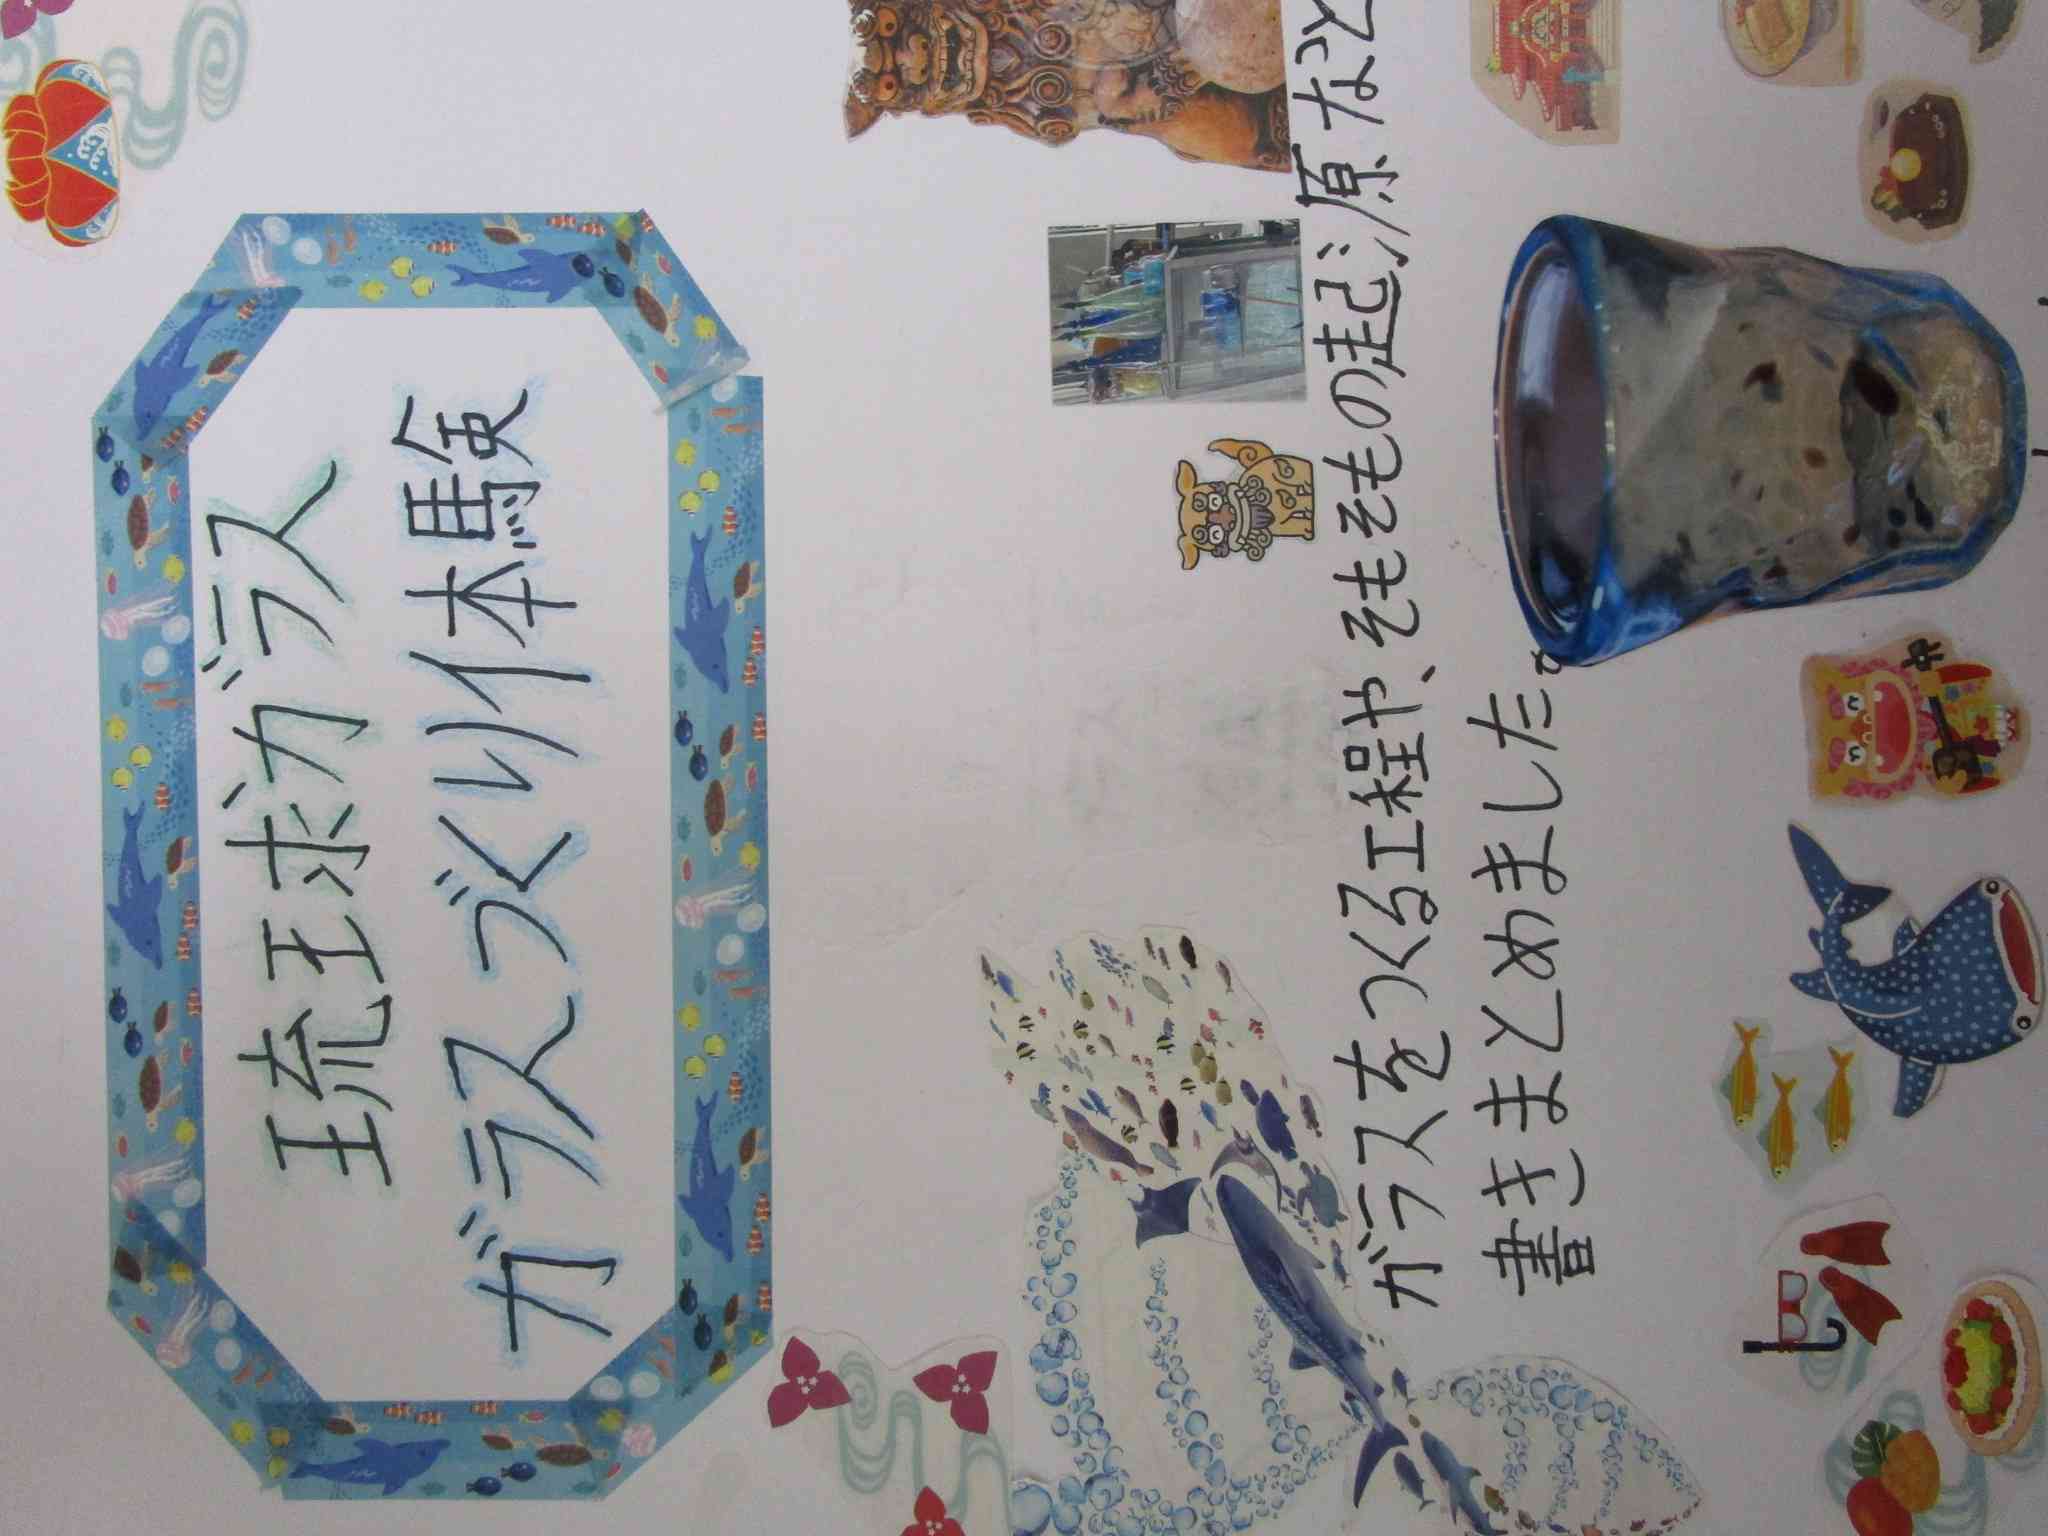 琉球ガラス
ガラスづくり体験
ガラスをつくる工程や、そもそもの起源など
書きまとめました。